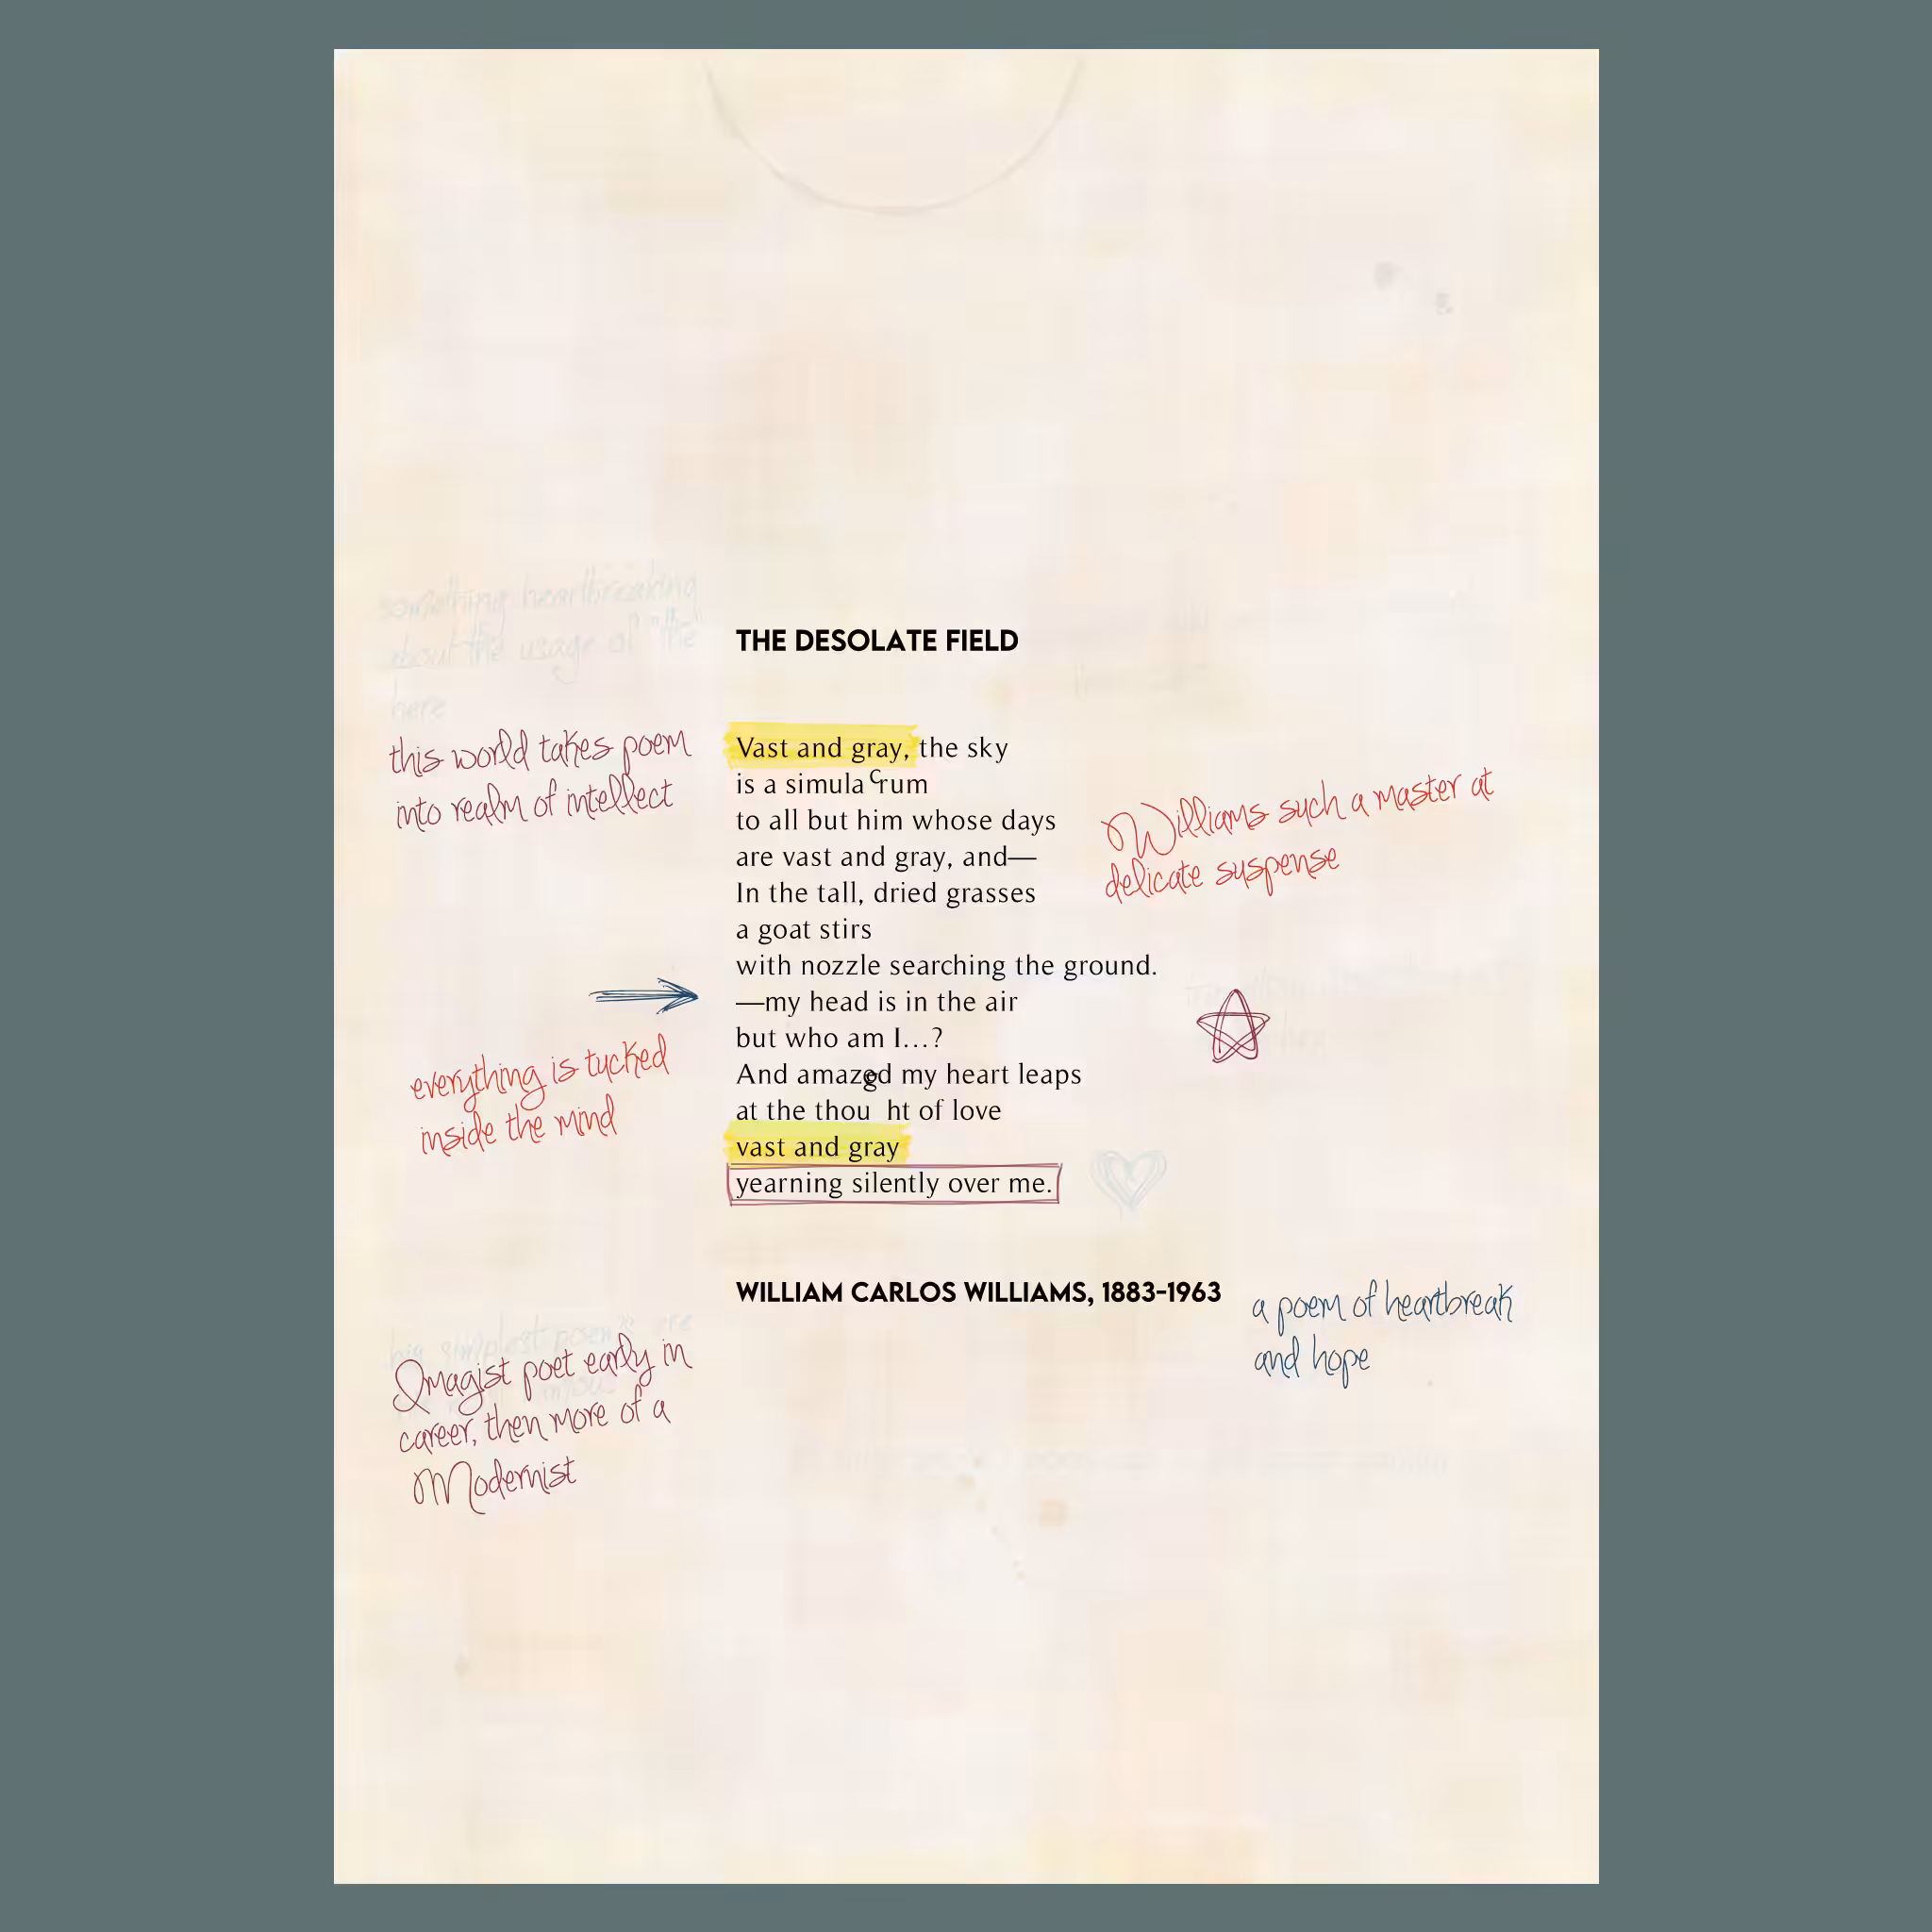 something heartbreaking
about the usage of "the"
here
THE DESOLATE FIELD
this world takes poem
into realm of intellect
Vast and gray, the sky
is a simulacrum
to all but him whose days
are vast and gray, and—
In the tall, dried grasses
a goat stirs
with nozzle searching the ground.
—my head is in the air
but who am I...?
And amazed my heart leaps
at the thought of love
vast and gray
yearning silently over me.
Williams such a master at
delicate suspense
everything is tucked
inside the mind
WILLIAM CARLOS WILLIAMS, 1883-1963
a poem of heartbreak
and hope
his simplest poems are
Imagist poet early in
career, then more of a
Modernist